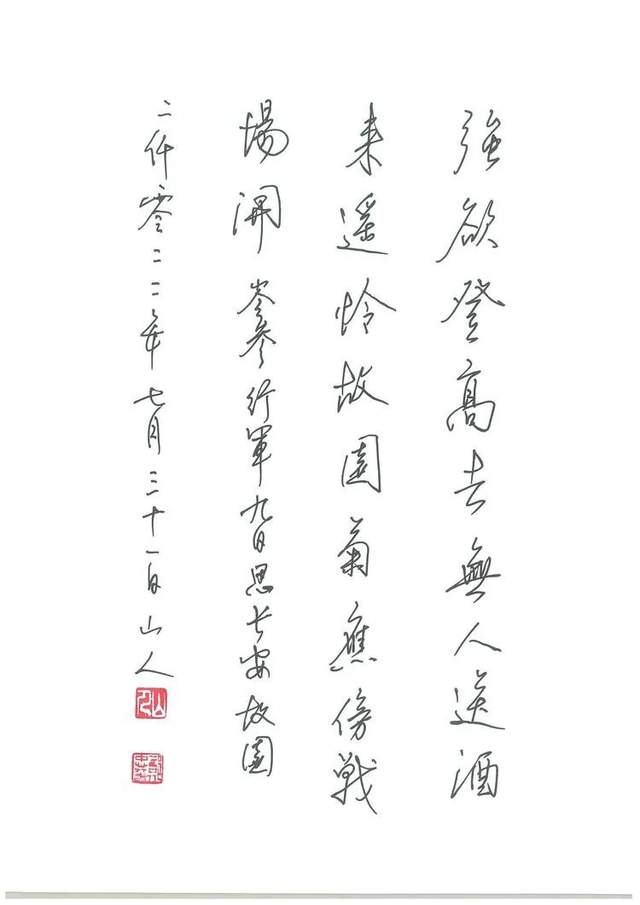 強欲登高去無人送酒
来遥怜故園菊應傍戦
場開 岑參行軍九日思長安故園
二仟零二二年七月三十一日山人